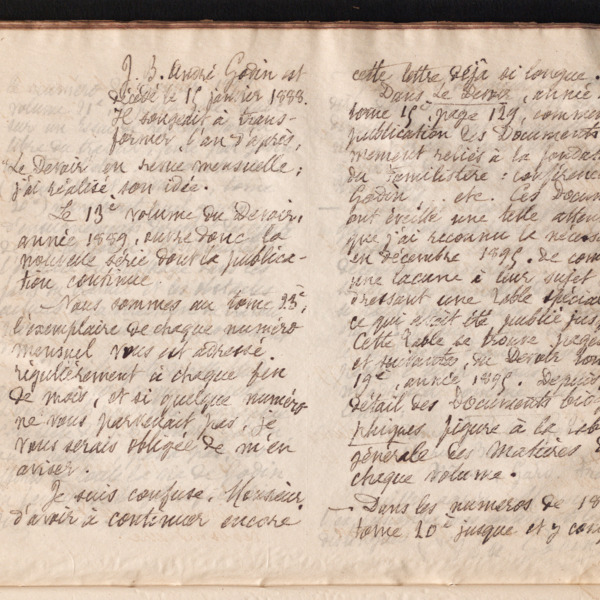 J. B. André Godin est
décédé le 15 janvier 1888.
Il songeait à trans-
former, l'an d'après,
"Le Devoir en revue mensuelle;
j'ai réalisé son idée.
Le 13e volume du Devoir,
année 1889, ouvre donc la
nouvelle série dont la publica-
tion continue
- Nous sommes au tome 23e;
l'exemplaire de chaque numéro
mensuel vous est adressé
régulièrement à chaque fin
de mois, et si quelque numéro
ne vous parvenait pas, je
vous serais obligée de m'en
aviser.
Je suis confuse, Monsieur,
d'avoir à continuer encore
cette lettre déjà si longue.
Dans Le Devoir, année
tome 15e, page 129, commen
publication des Documents
mement reliés à la fondat
du Familistère: conférenc
Godin, etc. Ces Docum
ont éveillé une telle atten
que j'ai reconnu la nécess
en décembre 1895, de com
une lacune à leur sujet
dressant une Table spécial
ce qui avait été publié jus
Cette Table se trouve page
et suivantes, du Devoir tom
19e, année 1895. Depuis
détail des Documents biog
phiques figure à la Tab
générale des matières d
chaque volume.
- Dans les numéros de 18
tome 20e jusque et y comp